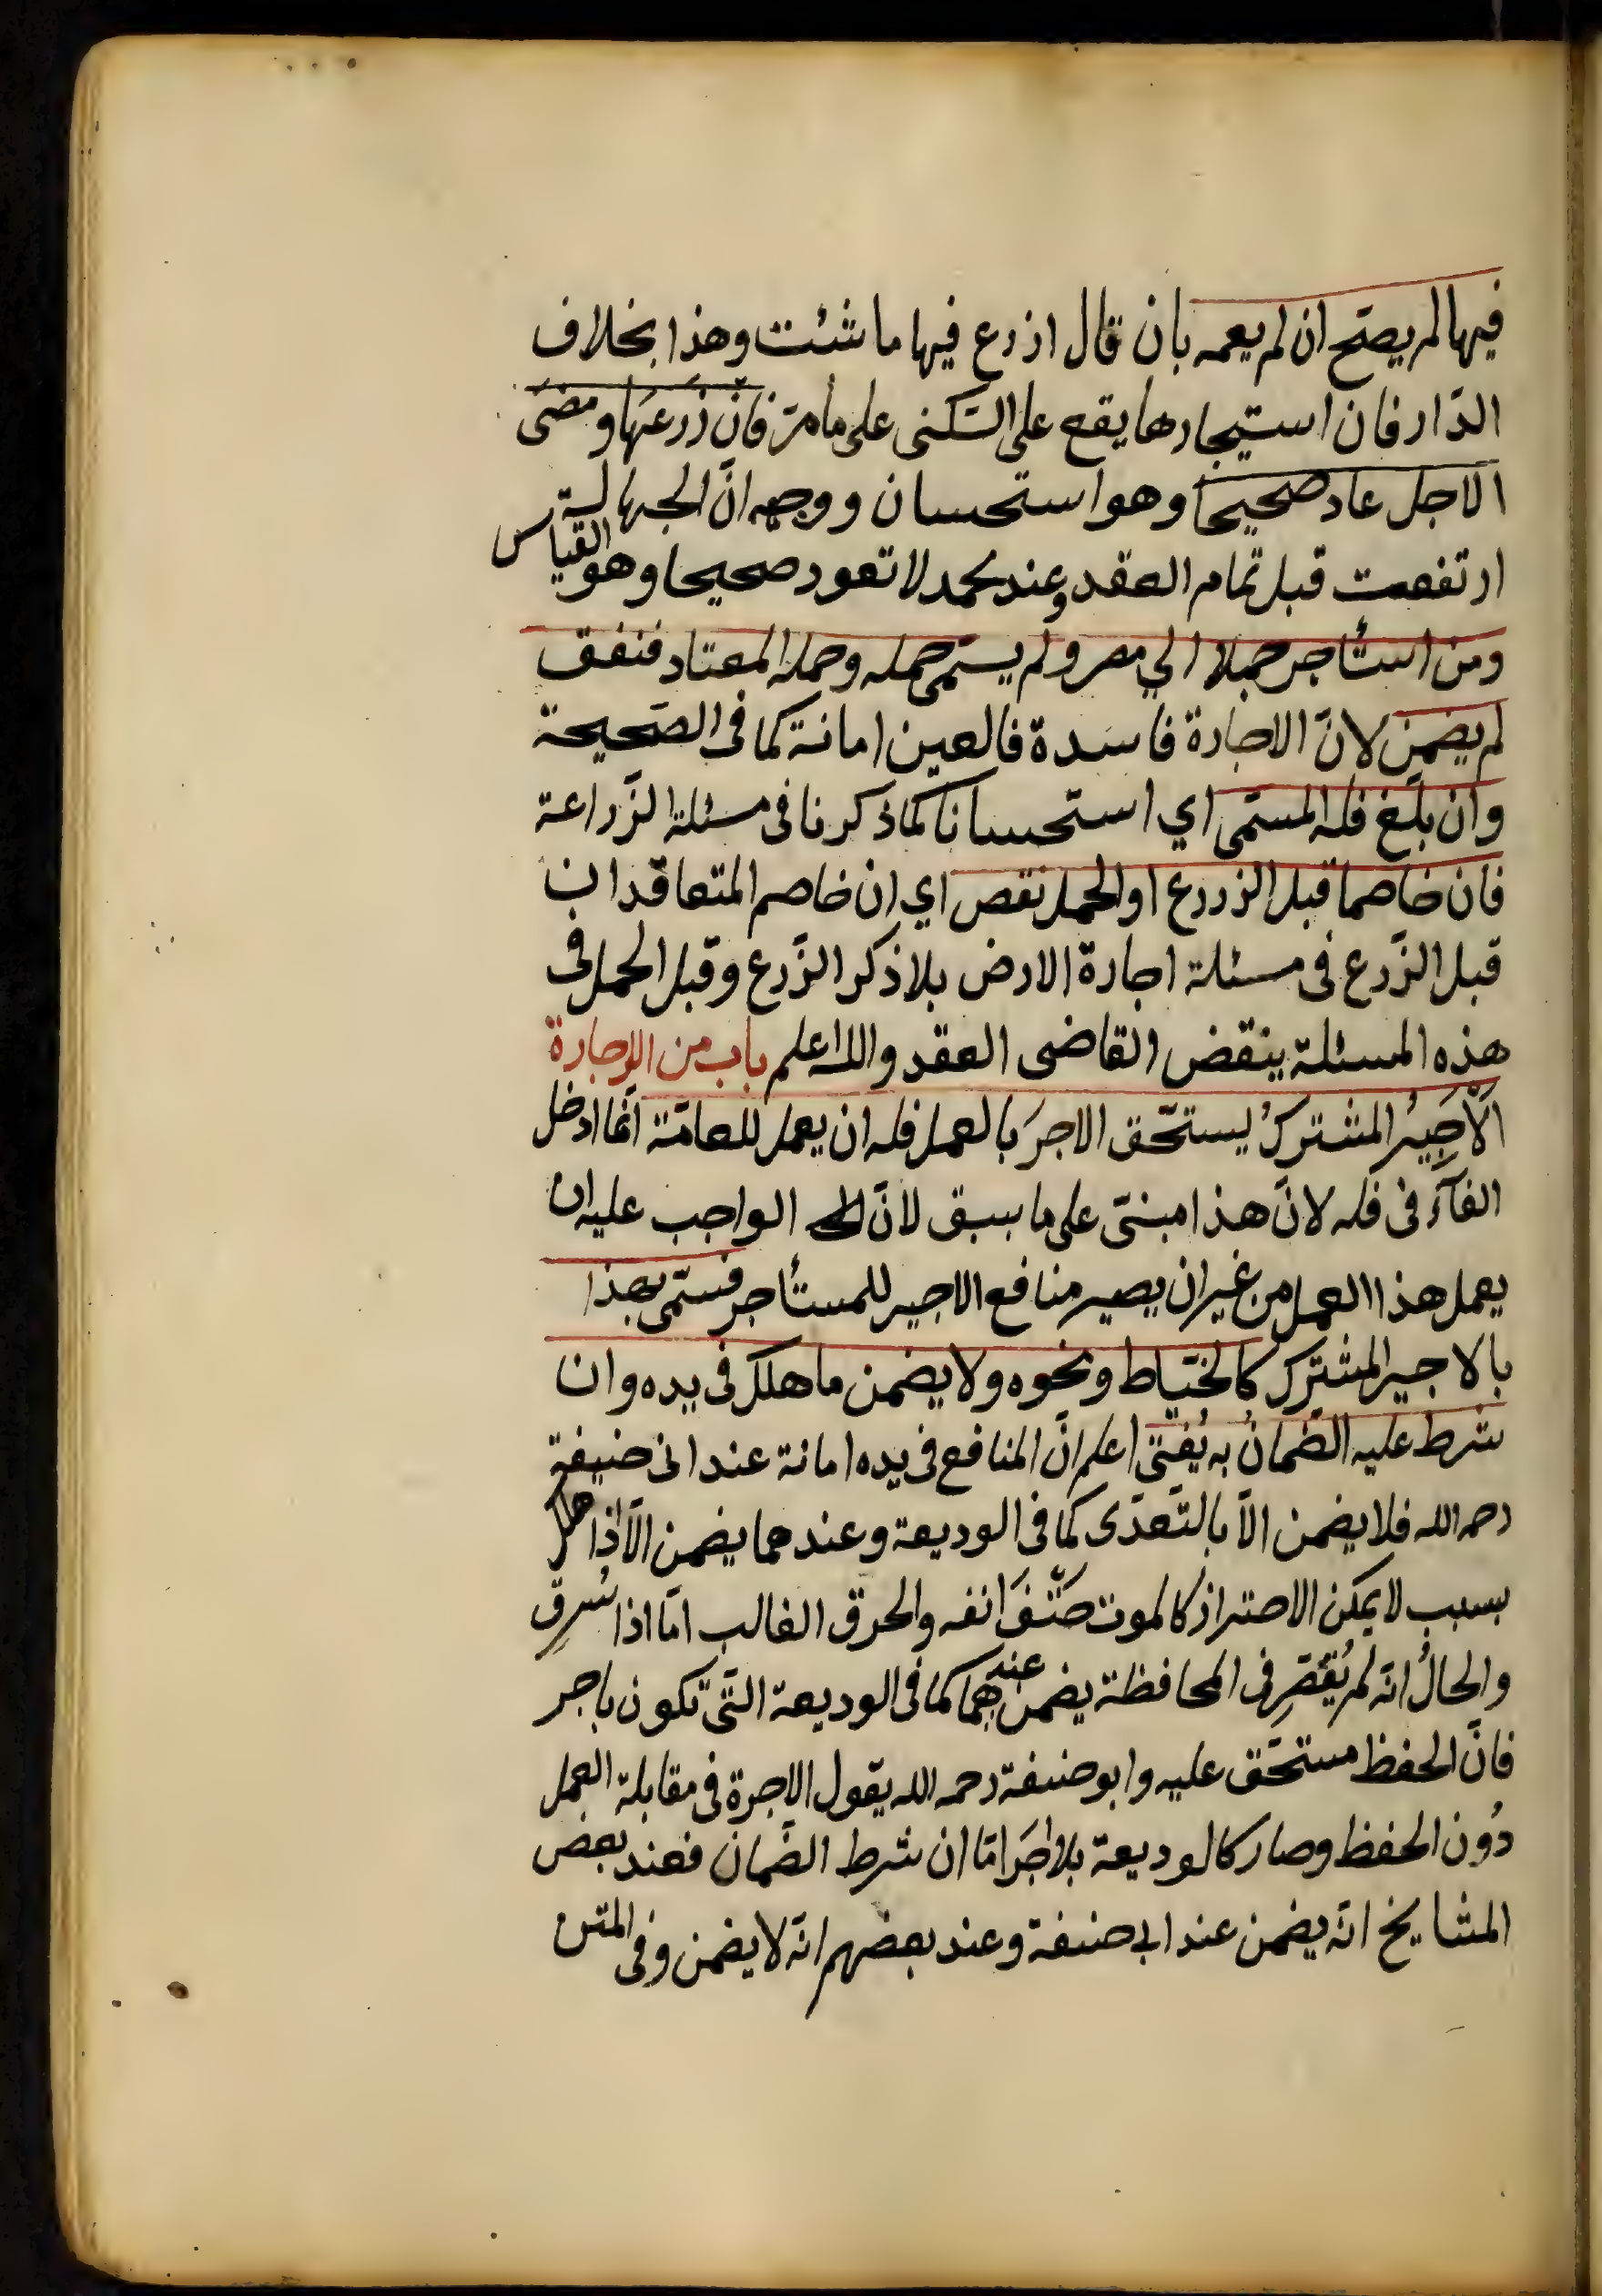 فيها لم يصحّ ان لم يعمه بان قال ازرع فيها ما شئت وهذا بخلاف
الدّار فان استيجارها يقع على السّكنى على ما مرّ فان زرعها ومضى
الاجل عاد صحيحا وهو استحسان ووجهه انّ الجهالة
ارتفعت قبل تمام العقد وعند محمد لا تعود صحيحا وهو القياس
ومن استأجر جملا الي مصر ولم يسمّ حمله وحمل المعتاد فنفق
لم يضمن لانّ الاجارة فاسدة فالعين امانة كما في الصّحيحة
وان بلغ فله المسمّى اي استحسانا كما ذكرنا في مسئلة الزّراعة
فان خاصما قبل الزرع او الحمل نقص اي ان خاصم المتعاقدان
قبل الزّرع في مسئلة اجارة الارض بلا ذكر الزّرع وقبل الحمل في
هذه المسئلة ينقض القاضى العقد والله اعلم باب من الاجارة
الاَجِيرُ المشتركُ يستحّق الاجرَ بالعمل فله ان يعمل للعامّة انّما ادخل
الفآء في فله لانّ هذا مبنىّ على ما سبق لانّ الواجب عليه ان
يعمل هذا العمل من غير ان يصير منافع الاجير للمستأجر فسمّى بهذا
بالاجير المشترك كالخيّاط ونحوه ولا يضمن ما هلك في يده وان
شرط عليه الضّمانُ به يُفتى اعلم انّ المنافع في يده امانة عند ابى حنيفة
رحمه الله فلا يضمن الاّ بالتّعدّى كما في الوديعة وعندهما يضمن الاّ اذا هلك
بسبب لا يمكن الاحتراز كالموت حتْفَ انفه والحرق الغالب امّا اذا سُرِق
والحالُ انّه لم يُقَصّر في المحافظة يضمن عندهما كما في الوديعة التّى تكون باجر
فانّ الحفظ مستحّق عليه وابو حنيفة رحمه الله يقول الاجرة في مقابلة العمل
دُون الحفظ وصار كالوديعة بلا اجَر امّا ان شرط الضّمان فعند بعض
المشايخ انّه يضمن عند ابي حنيفة وعند بعضهم انّه لا يضمن وفي المتن